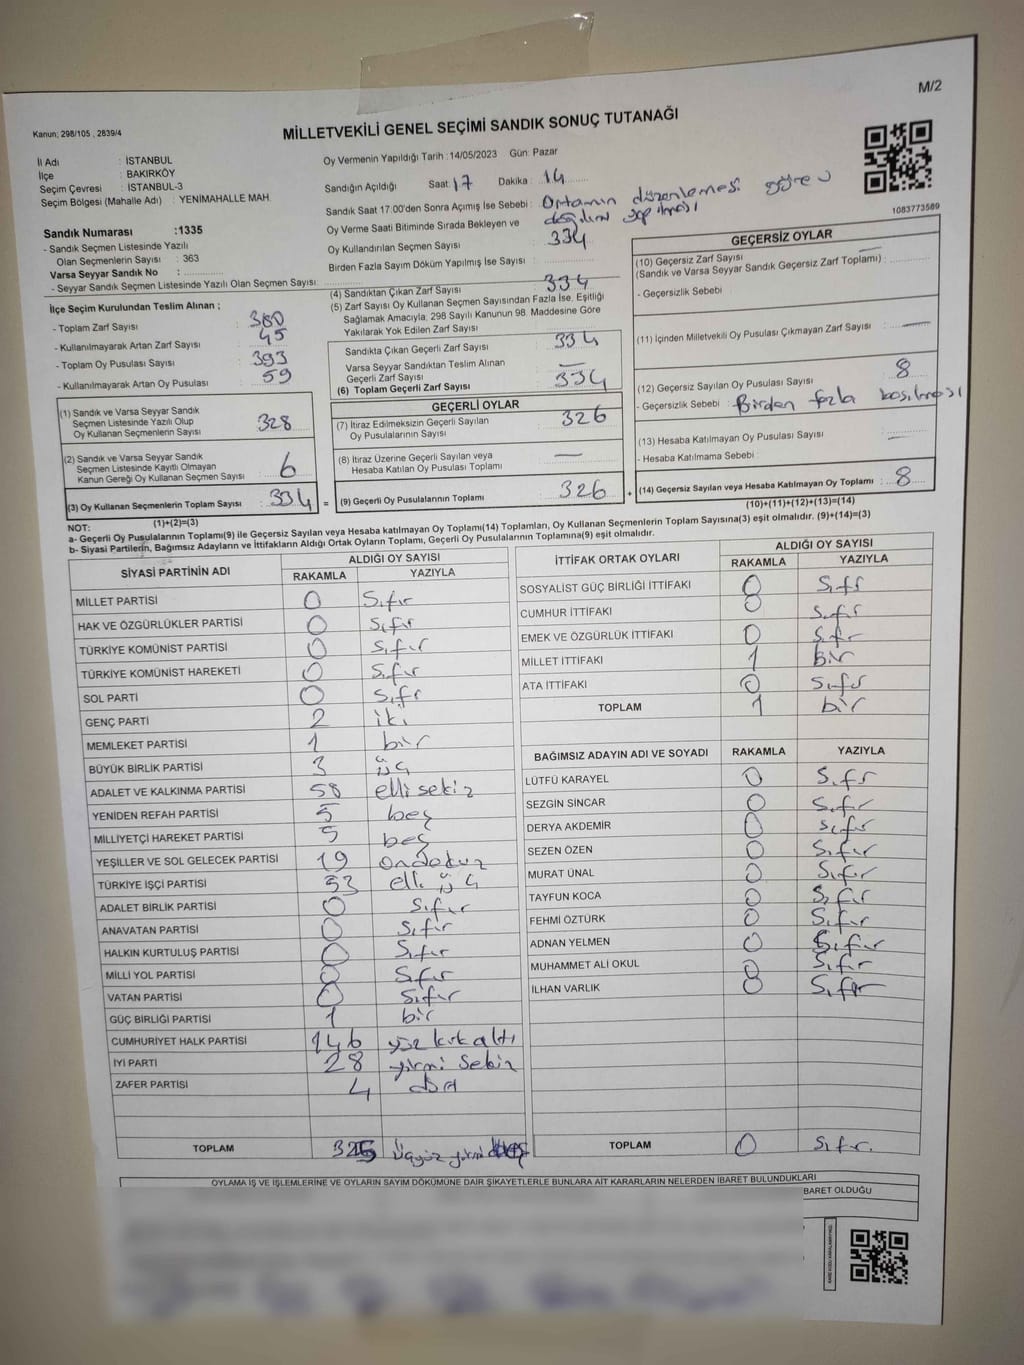 M/2
Kanun; 298/105 , 2839/4
MİLLETVEKİLİ GENEL SEÇİMİ SANDIK SONUÇ TUTANAĞI
İl Adı : İSTANBUL
İlçe : BAKIRKÖY
Seçim Çevresi : İSTANBUL-3
Seçim Bölgesi (Mahalle Adı) : YENİMAHALLE MAH.
Sandık Numarası :1335
- Sandık Seçmen Listesinde Yazılı
Olan Seçmenlerin Sayısı : 363
Varsa Seyyar Sandık No :
- Seyyar Sandık Seçmen Listesinde Yazılı Olan Seçmen Sayısı :
Oy Vermenin Yapıldığı Tarih :14/05/2023 Gün: Pazar
Sandığın Açıldığı Saat : 17 Dakika : 14
Sandık Saat 17.00'den Sonra Açılmış İse Sebebi : Ortamın düzenlemesi görev
dağılımı yapılması
Oy Verme Saati Bitiminde Sırada Bekleyen ve
Oy Kullandırılan Seçmen Sayısı : 334
Birden Fazla Sayım Döküm Yapılmış İse Sayısı :
1083773589
İlçe Seçim Kurulundan Teslim Alınan ;
- Toplam Zarf Sayısı : 380
- Kullanılmayarak Artan Zarf Sayısı : 45
- Toplam Oy Pusulası Sayısı : 393
- Kullanılmayarak Artan Oy Pusulası : 59
(1) Sandık ve Varsa Seyyar Sandık
Seçmen Listesinde Yazılı Olup
Oy Kullanan Seçmenlerin Sayısı : 328
(2) Sandık ve Varsa Seyyar Sandık
Seçmen Listesinde Kayıtlı Olmayan
Kanun Gereği Oy Kullanan Seçmen Sayısı : 6
(3) Oy Kullanan Seçmenlerin Toplam Sayısı : 334
(1)+(2)=(3)
(4) Sandıktan Çıkan Zarf Sayısı : 334
(5) Zarf Sayısı Oy Kullanan Seçmen Sayısından Fazla İse, Eşitliği
Sağlamak Amacıyla; 298 Sayılı Kanunun 98. Maddesine Göre
Yakılarak Yok Edilen Zarf Sayısı :
Sandıkta Çıkan Geçerli Zarf Sayısı : 334
Varsa Seyyar Sandıktan Teslim Alınan
Geçerli Zarf Sayısı : —
(6) Toplam Geçerli Zarf Sayısı : 334
GEÇERLİ OYLAR
(7) İtiraz Edilmeksizin Geçerli Sayılan
Oy Pusulalarının Sayısı : 326
(8) İtiraz Üzerine Geçerli Sayılan veya
Hesaba Katılan Oy Pusulası Toplamı : —
= (9) Geçerli Oy Pusulalarının Toplamı : 326
GEÇERSİZ OYLAR
(10) Geçersiz Zarf Sayısı
(Sandık ve Varsa Seyyar Sandık Geçersiz Zarf Toplamı) : —
- Geçersizlik Sebebi :
(11) İçinden Milletvekili Oy Pusulası Çıkmayan Zarf Sayısı : —
(12) Geçersiz Sayılan Oy Pusulası Sayısı : 8
- Geçersizlik Sebebi : Birden fazla basılması
(13) Hesaba Katılmayan Oy Pusulası Sayısı : —
- Hesaba Katılmama Sebebi :
+ (14) Geçersiz Sayılan veya Hesaba Katılmayan Oy Toplamı : 8
(10)+(11)+(12)+(13)=(14)
NOT:
a- Geçerli Oy Pusulalarının Toplamı(9) ile Geçersiz Sayılan veya Hesaba katılmayan Oy Toplamı(14) Toplamları, Oy Kullanan Seçmenlerin Toplam Sayısına(3) eşit olmalıdır. (9)+(14)=(3)
b- Siyasi Partilerin, Bağımsız Adayların ve İttifakların Aldığı Ortak Oyların Toplamı, Geçerli Oy Pusulalarının Toplamına(9) eşit olmalıdır.
SİYASİ PARTİNİN ADI ALDIĞI OY SAYISI
RAKAMLA YAZIYLA
MİLLET PARTİSİ 0 Sıfır
HAK VE ÖZGÜRLÜKLER PARTİSİ 0 Sıfır
TÜRKİYE KOMÜNİST PARTİSİ 0 Sıfır
TÜRKİYE KOMÜNİST HAREKETİ 0 Sıfır
SOL PARTİ 0 Sıfır
GENÇ PARTİ 2 iki
MEMLEKET PARTİSİ 1 bir
BÜYÜK BİRLİK PARTİSİ 3 üç
ADALET VE KALKINMA PARTİSİ 58 ellisekiz
YENİDEN REFAH PARTİSİ 5 beş
MİLLİYETÇİ HAREKET PARTİSİ 5 beş
YEŞİLLER VE SOL GELECEK PARTİSİ 19 ondokuz
TÜRKİYE İŞÇİ PARTİSİ 53 elli üç
ADALET BİRLİK PARTİSİ 0 Sıfır
ANAVATAN PARTİSİ 0 Sıfır
HALKIN KURTULUŞ PARTİSİ 0 Sıfır
MİLLİ YOL PARTİSİ 0 Sıfır
VATAN PARTİSİ 0 Sıfır
GÜÇ BİRLİĞİ PARTİSİ 1 bir
CUMHURİYET HALK PARTİSİ 146 yüz kırkaltı
İYİ PARTİ 28 yirmi sekiz
ZAFER PARTİSİ 4 dört
TOPLAM 325 üçyüz yirmi beş
İTTİFAK ORTAK OYLARI ALDIĞI OY SAYISI
RAKAMLA YAZIYLA
SOSYALİST GÜÇ BİRLİĞİ İTTİFAKI 0 Sıfır
CUMHUR İTTİFAKI 0 Sıfır
EMEK VE ÖZGÜRLÜK İTTİFAKI 0 Sıfır
MİLLET İTTİFAKI 1 Bir
ATA İTTİFAKI 0 Sıfır
TOPLAM 1 bir
BAĞIMSIZ ADAYIN ADI VE SOYADI RAKAMLA YAZIYLA
LÜTFÜ KARAYEL 0 Sıfır
SEZGİN SİNCAR 0 Sıfır
DERYA AKDEMİR 0 Sıfır
SEZEN ÖZEN 0 Sıfır
MURAT ÜNAL 0 Sıfır
TAYFUN KOCA 0 Sıfır
FEHMİ ÖZTÜRK 0 Sıfır
ADNAN YELMEN 0 Sıfır
MUHAMMET ALİ OKUL 0 Sıfır
İLHAN VARLIK 0 Sıfır
TOPLAM 0 Sıfır.
OYLAMA İŞ VE İŞLEMLERİNE VE OYLARIN SAYIM DÖKÜMÜNE DAİR ŞİKAYETLERLE BUNLARA AİT KARARLARIN NELERDEN İBARET BULUNDUKLARI
BARET OLDUĞU